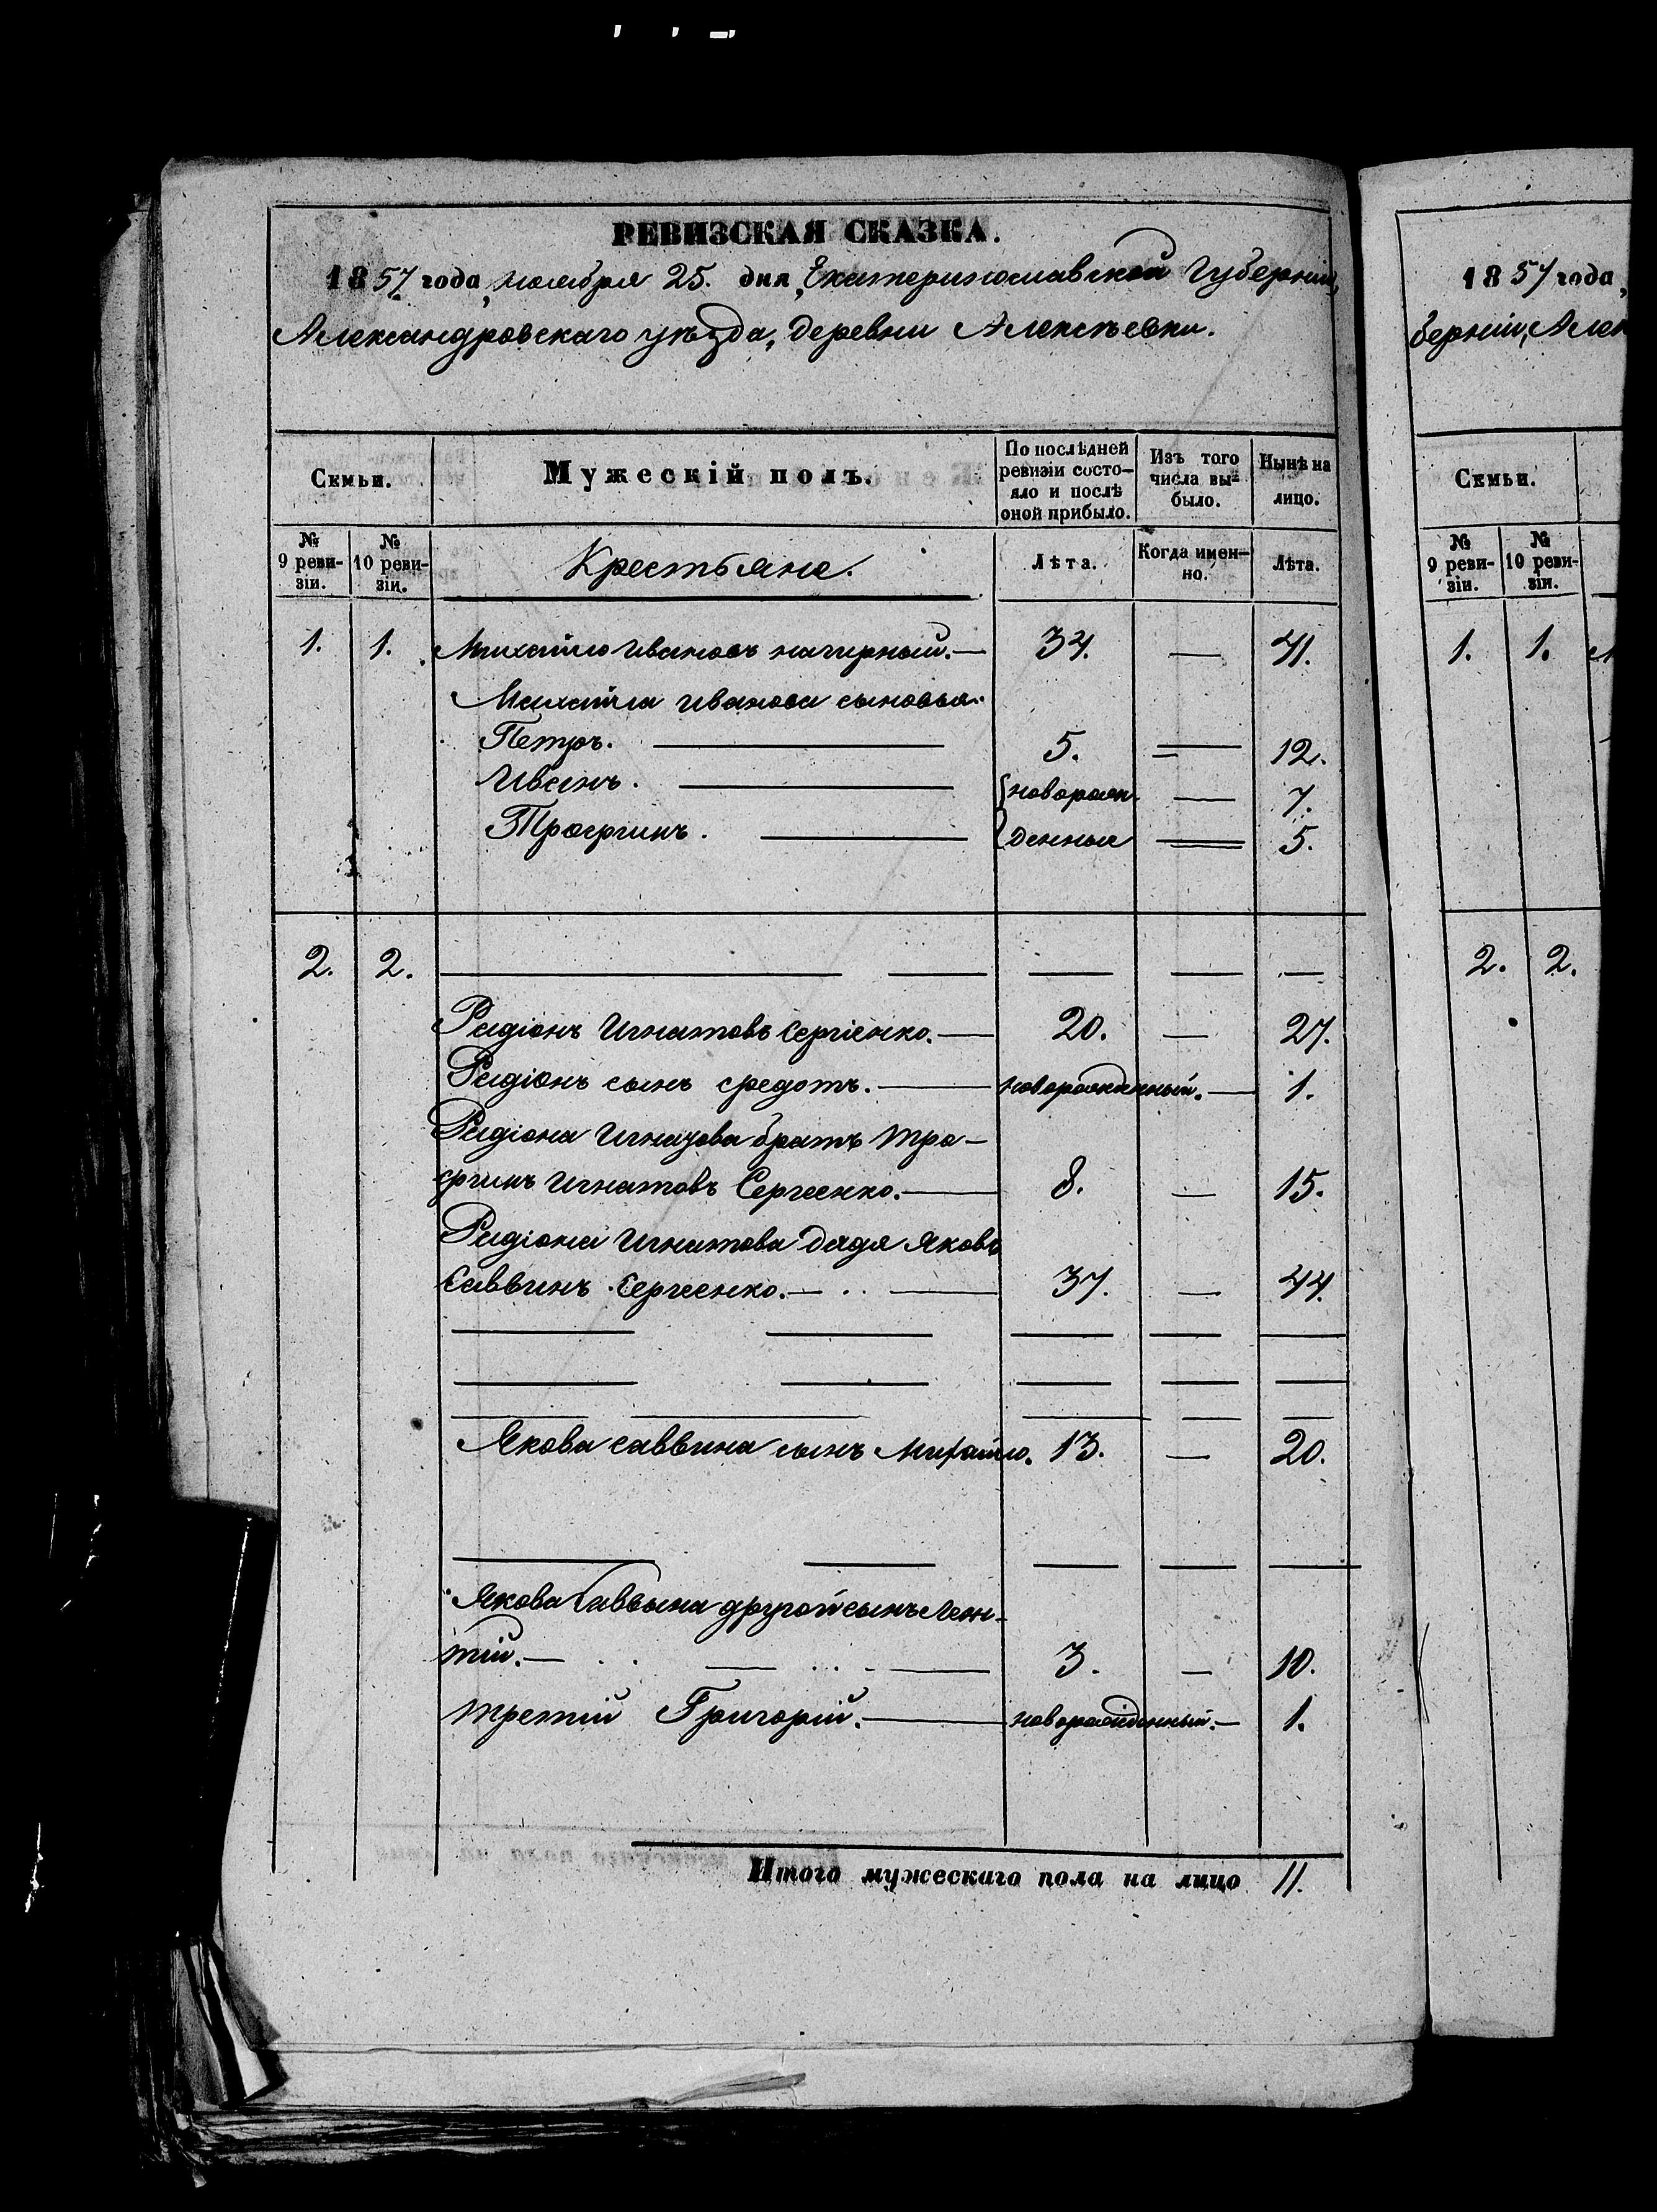 РЕВИЗСКАЯ СКАЗКА.
1857 года, ноября 25. дня, Екатеринославской Губерніи,
Александровскаго уѣзда, деревни Алексѣевки.
Семьи.
Мужескій полъ.
По послѣдней ревизіи состо-
яло и послѣ оной прибыло.
Изъ того числа вы=
было.
Нынѣ на лицо.
№ 9 реви-
зіи.
№ 10 реви-
зіи.
Крестьяне.
Лѣта.
Когда имен-
но.
Лѣта.
1. 1. Михайло Ивановъ нагирный.— 34. — 41.
Михайла Иванова сыновья.
Петръ. — 5. — 12.
Иванъ. — новорож- — 7.
Трофимъ. — денные — 5.
2. 2. — — — — —
Радіонъ Игнатовъ Сергіенко.— 20. — 27.
Радіонъ сынъ Федотъ.— новорожденный.— 1.
Радіона Игнатова братъ Тро-
фимъ Игнатовъ Сергеенко.— 8. — 15.
Радіона Игнатова дядя Яковъ
Саввинъ Сергеенко.— 37. — 44.
Якова Саввина сынъ Михайло. 13. — 20.
Якова Саввина другой сынъ Леон-
тій.— 3. — 10.
третій Григорій.— новорожденный.— 1.
Итого мужескаго пола на лицо 11.
1857 года,
берніи, Алек
Семьи.
№ 9 реви-
зіи.
№ 10 реви-
зіи.
1. 1.
2. 2.